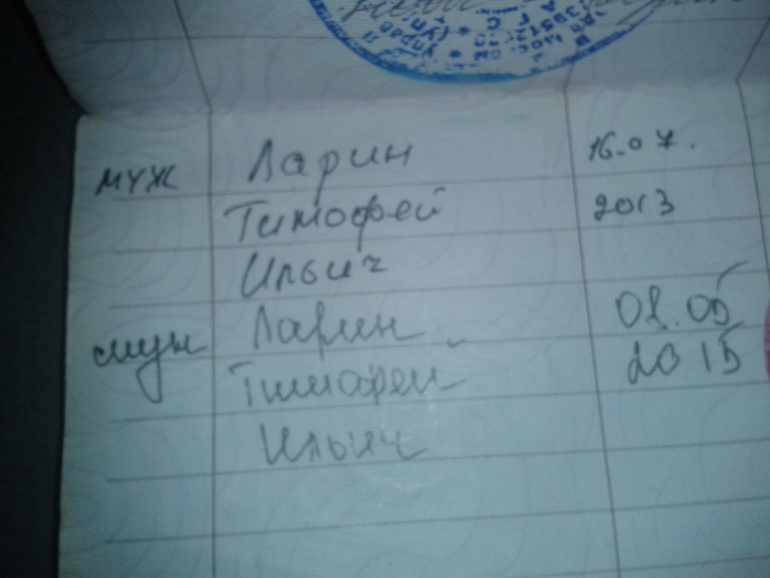 муж Ларин 16.07.
Тимофей 2013
Ильич
муж Ларин 08.05
Тимофей 2015
Ильич